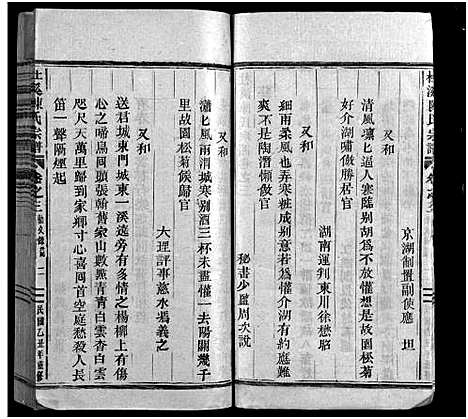 杜溪陳氏宗譜 卷之三
京湖制置副使應 坦
清風壤匕逼人寒臨別胡爲不放懽想是故園松菊
好介湖嘯傲勝居官
湖南運判東川徐懋
又和
細雨柔風也弄寒粧成別意若爲懽介湖有約應難
爽不是陶潛懶傲官
秘書少監周次說
又和
瀟匕風雨渭城寒別酒三杯未盡懽一去陽關幾千
里故園松菊候歸官
大理評事慈水馮義之
又和
送君城東門城東一溪遶旁有多情之楊柳上有傷
心之啼鳥回頭張翰舊家山數點青青白雲杳白雲
咫尺天萬里歸到家鄉寸心喜回首空庭愁殺人長
笛一聲隔煙起
杜溪陳氏宗譜 卷之三 民國乙丑年重修